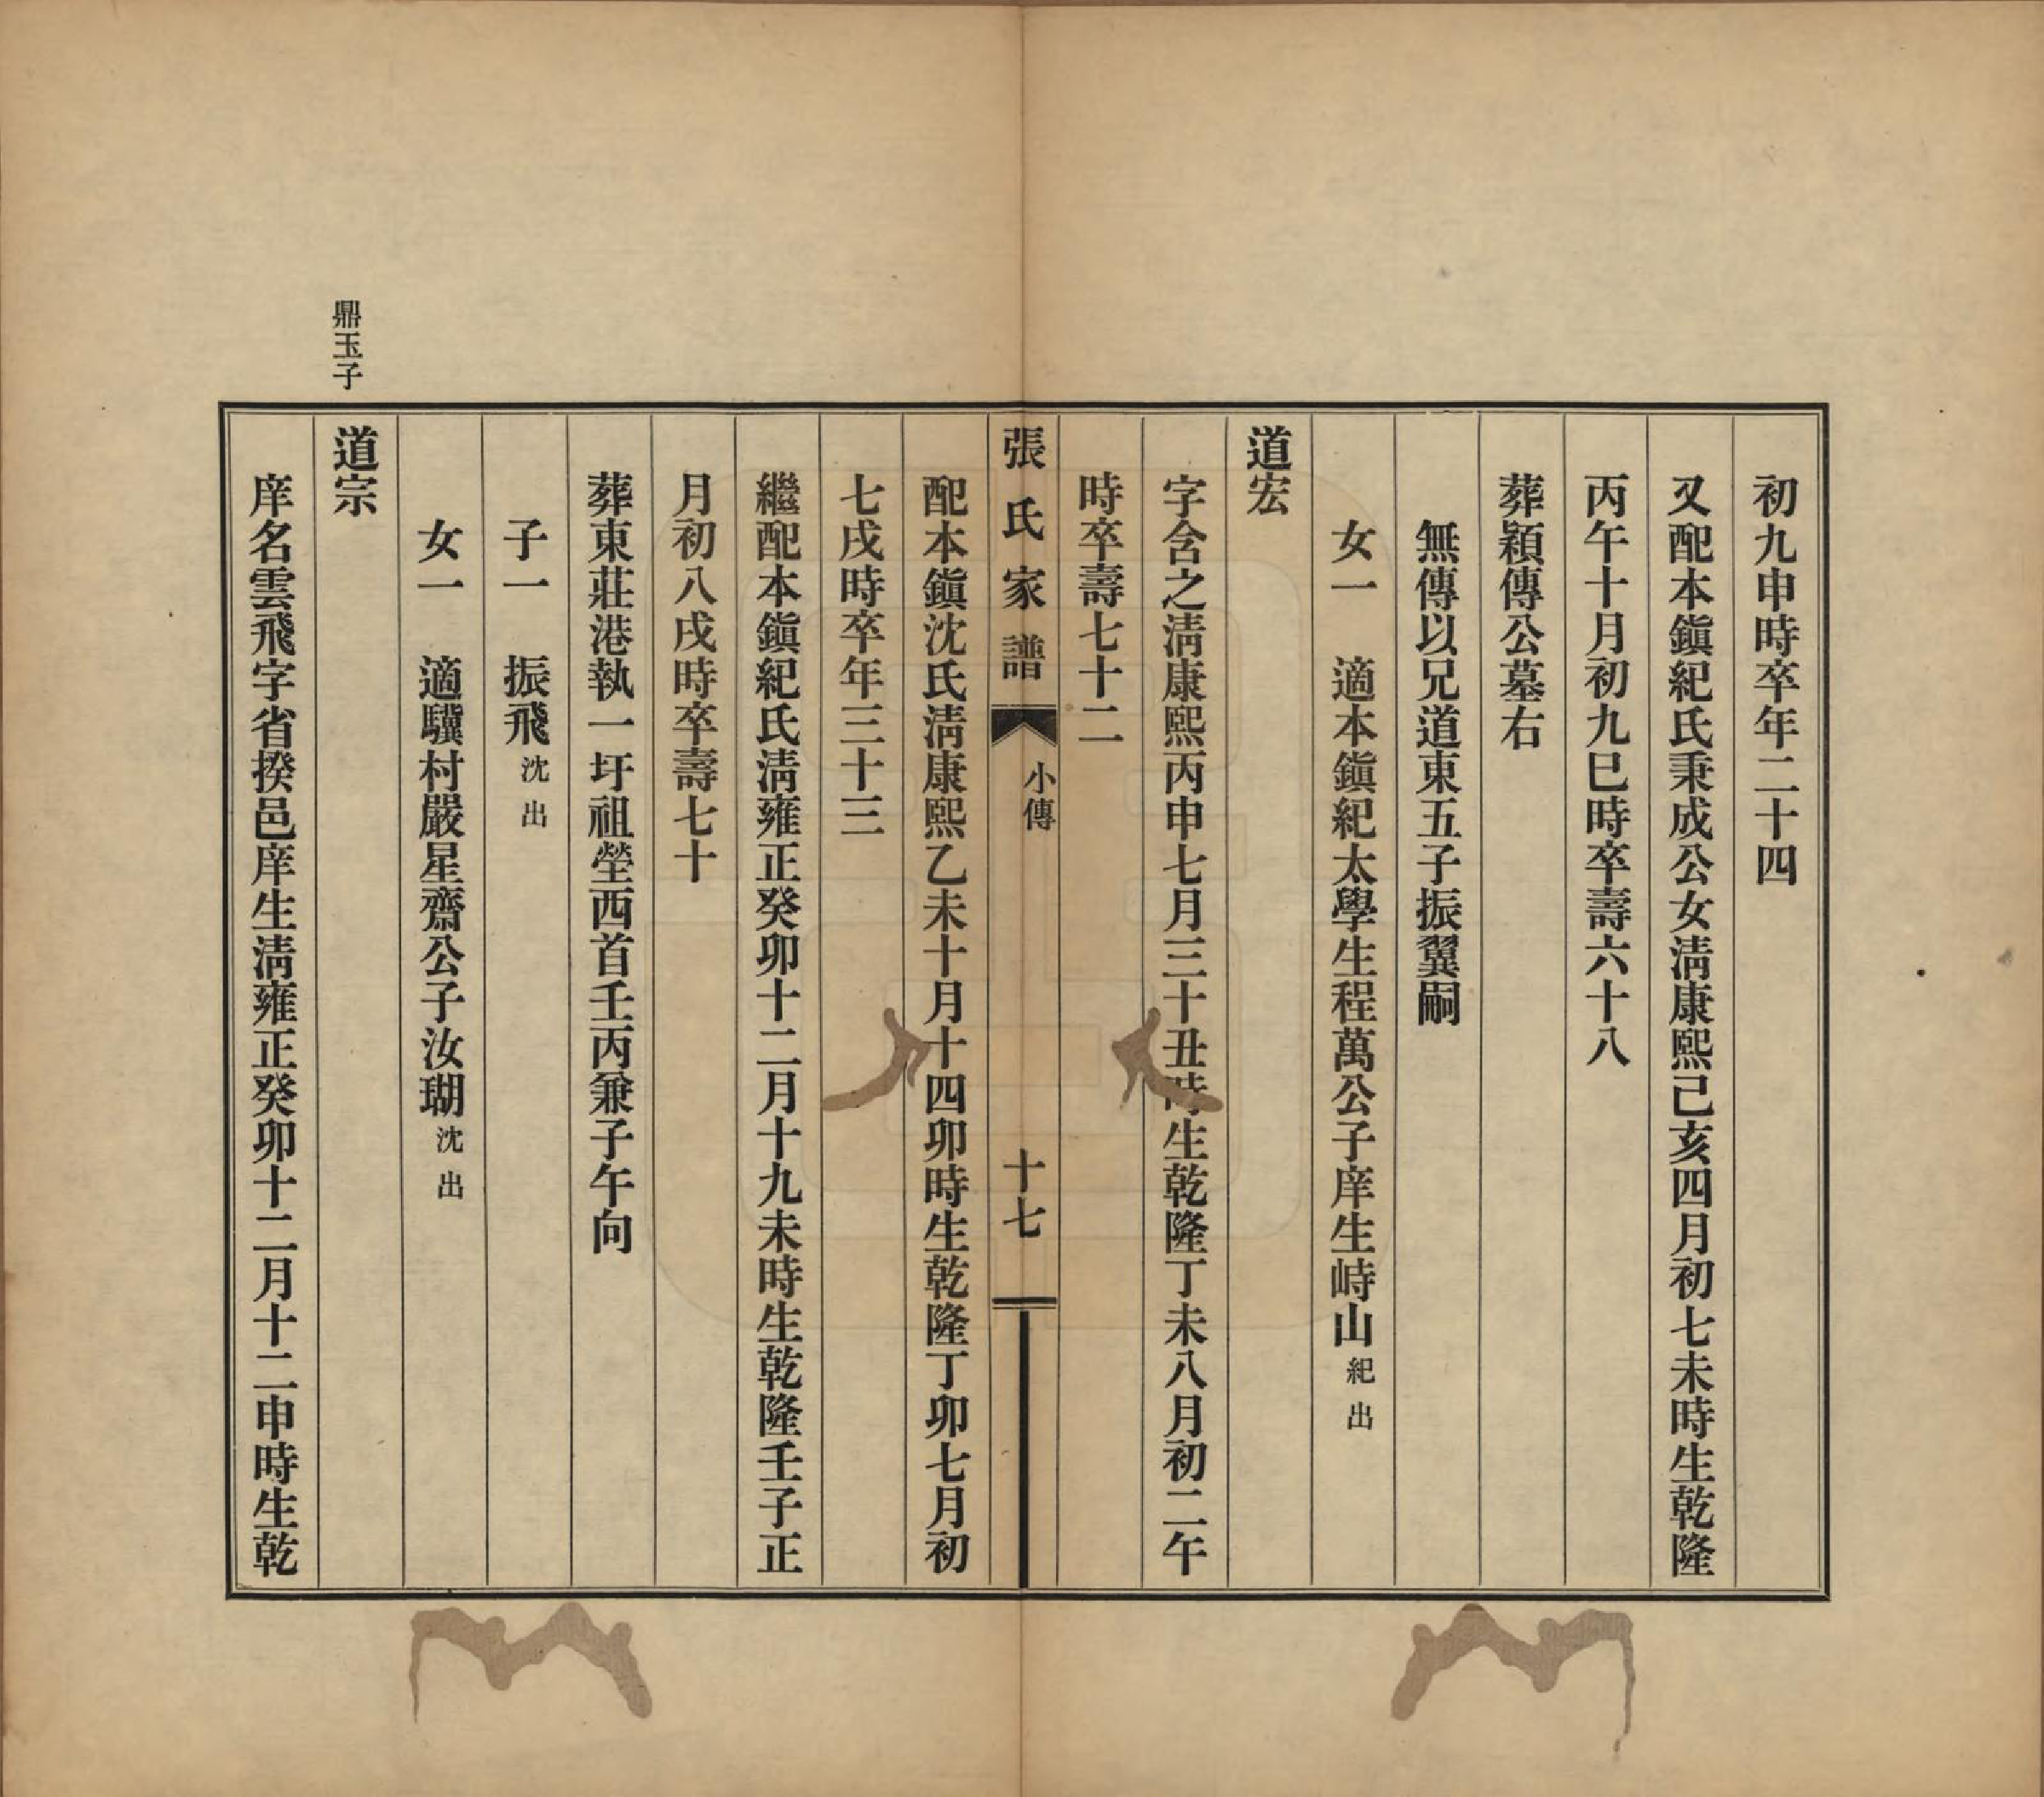 初九申時卒年二十四
又配本鎭紀氏秉成公女淸康熙己亥四月初七未時生乾隆
丙午十月初九巳時卒壽六十八
葬穎傳公墓右
無傳以兄道東五子振翼嗣
女一　適本鎭紀太學生程萬公子庠生峙山紀出
道宏
字含之淸康熙丙申七月三十丑時生乾隆丁未八月初二午
時卒壽七十二
張氏家譜　小傳　十七
配本鎭沈氏淸康熙乙未十月十四卯時生乾隆丁卯七月初
七戌時卒年三十三
繼配本鎭紀氏淸雍正癸卯十二月十九未時生乾隆壬子正
月初八戌時卒壽七十
葬東莊港執一圩祖塋西首壬丙兼子午向
子一　振飛沈出
女一　適驥村嚴星齋公子汝瑚沈出
鼎玉子
道宗
庠名雲飛字省揆邑庠生淸雍正癸卯十二月十二申時生乾